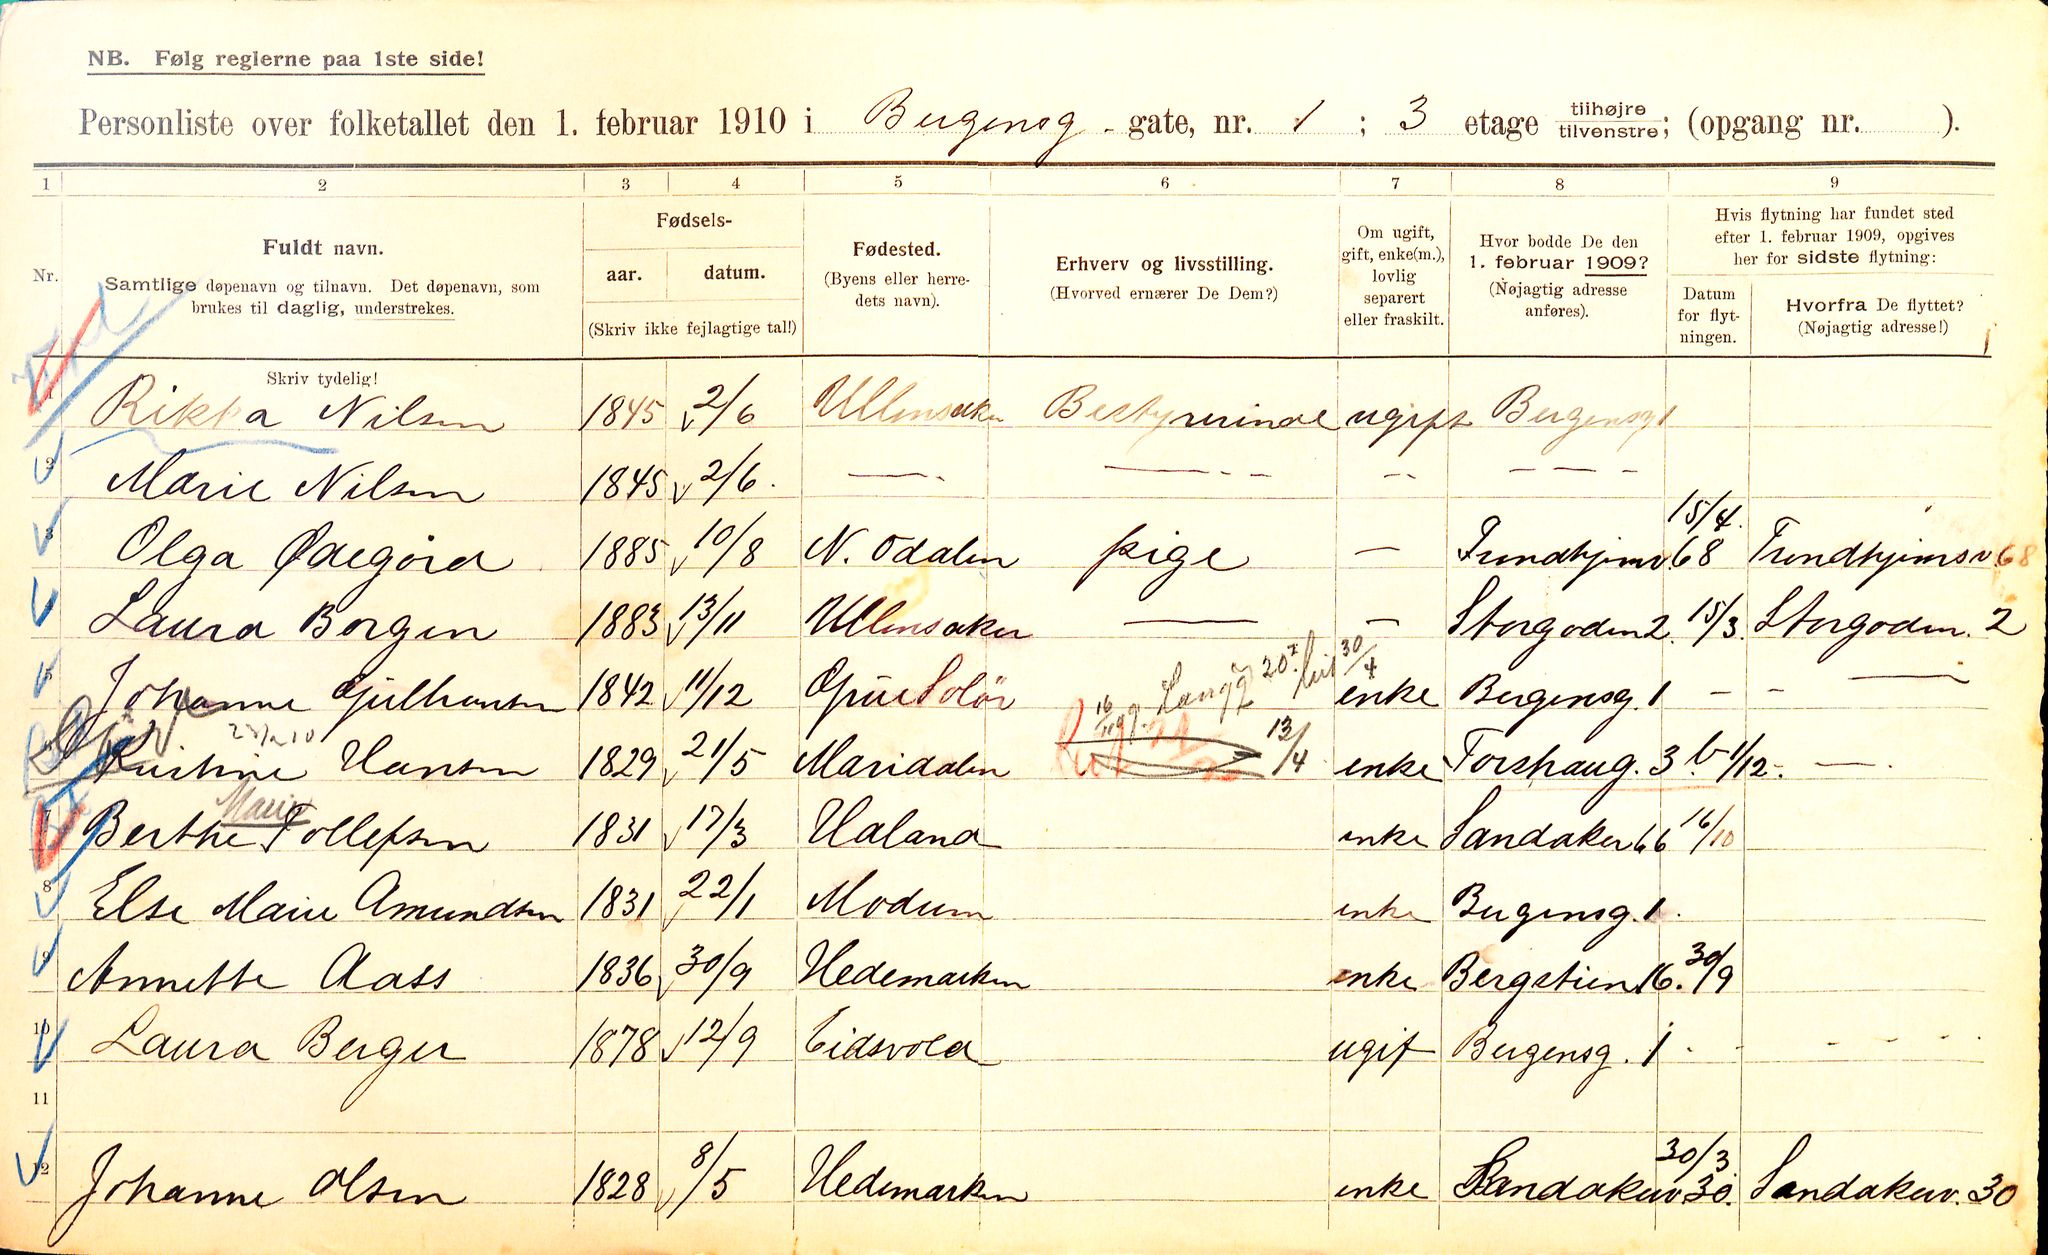 NB. Følg reglerne paa 1ste side!
Personliste over folketallet den 1. februar 1910 i Bergensg. gate, nr. 1 ; 3 etage tilhøjre tilvenstre; (opgang nr. ).
1 2 3 4 5 6 7 8 9
Nr.
Fuldt navn.
Samtlige døpenavn og tilnavn. Det døpenavn, som
brukes til daglig, understrekes.
Skriv tydelig!
Fødsels-
aar. datum.
(Skriv ikke fejlagtige tal!)
Fødested.
(Byens eller herre-
dets navn).
Erhverv og livsstilling.
(Hvorved ernærer De Dem?)
Om ugift,
gift, enke(m.),
lovlig
separert
eller fraskilt.
Hvor bodde De den
1. februar 1909?
(Nøjagtig adresse
anføres).
Hvis flytning har fundet sted
efter 1. februar 1909, opgives
her for sidste flytning:
Datum
for flyt-
ningen.
Hvorfra De flyttet?
(Nøjagtig adresse!)
1 Rikka Nilsen 1845 2/6 Ullensaker Bestyrerinde ugift Bergensg 1
2 Marie Nilsen 1845 2/6. — — - - - - — - -
3 Olga Ødegård 1885 10/8 N. Odalen pige — Trondhjemsv. 68 15/4. Trondhjemsv. 68
4 Laura Borgen 1883 13/11 Ullensaker — - Storgaden 2. 15/3. Storgaden. 2
5 Johanne Gulbransen 1842 11/12 Grue Solør enke Bergensg. 1 - - —
30/4
13/4
6 Kristine Hansen 1829 21/5 Maridalen enke Torshaug. 3 b 1/12. —
Marie
7 Berthe Tollefsen 1831 17/3 Haland enke Sandaker 66 16/10
8 Else Marie Amundsen 1831 22/1 Modum enke Bergensg. 1.
9 Annette Aass 1836 30/9 Hedemarken enke Bergstien 16. 30/9
10 Laura Berger 1878 12/9 Eidsvold ugif Bergensg. 1 - - - - - -
11
12 Johanne Olsen 1828 8/5 Hedemarken enke Sandakerv 30. 30/3. Sandakerv. 30